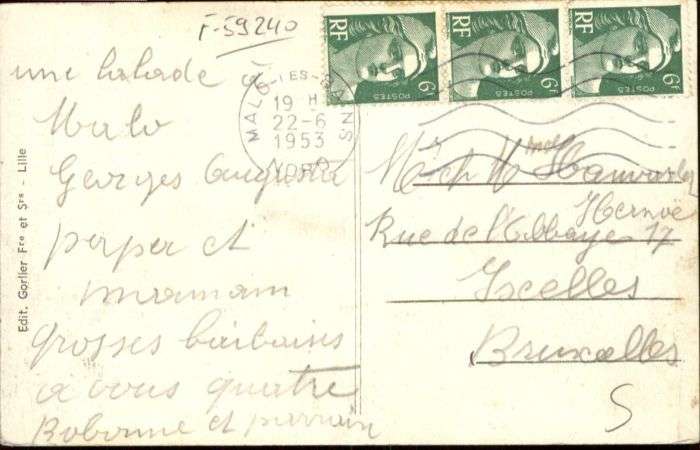 F-59240
RF RF RF
6F 6F 6F
POSTES POSTES POSTES
MALO-LES-BAINS
19 H
22-6
1953
NORD
une balade
Malo
Georges
peper et
mamam
grosses baibaises
a vous quatre
Bobonne et parrain
Edit. Gorlier Fre et Srs - Lille
Hernoë
Rue de l'Abbaye 17
Ixelles
Bruxelles
S